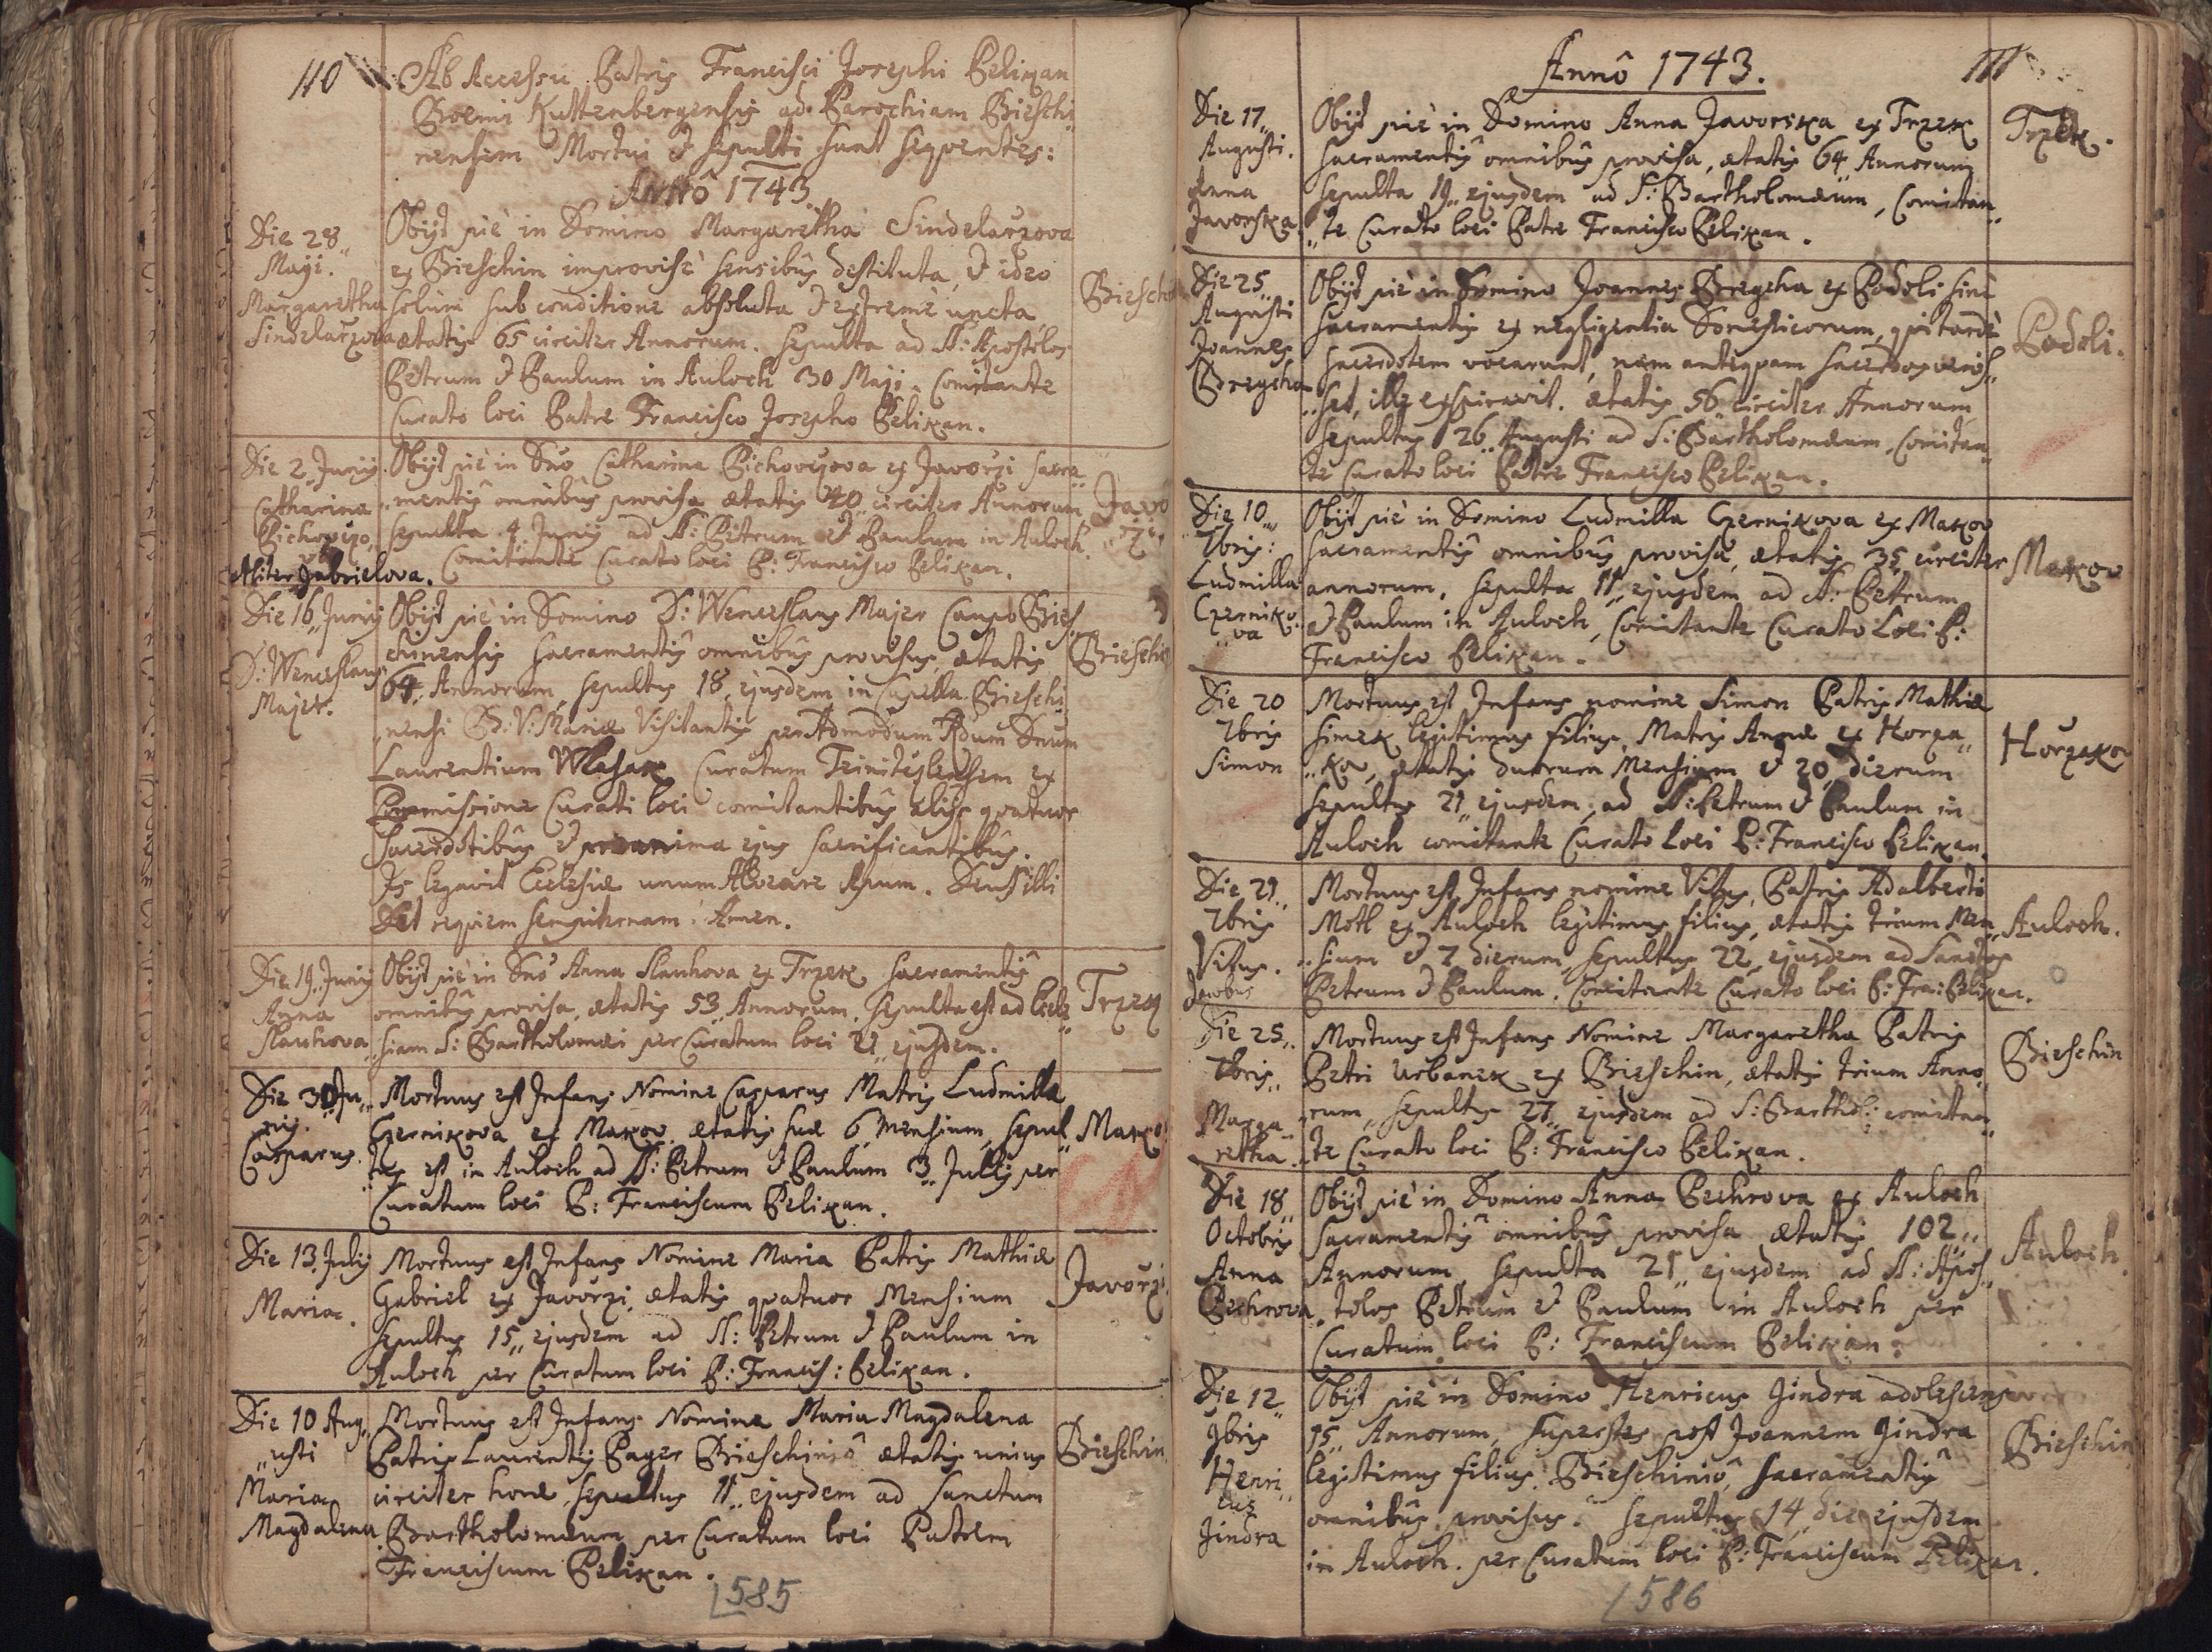 110
Ab Accessu Patris Francisci Josephi Pelikan
Boemi Kuttenbergensis ad Parochiam Bieschi
nensem Mortui & sepulti sunt sequentes:
Annô 1743.
Die 28 Maji.
Margaretha
Sindelarzova
Obijt piè in Domino Margaretha Sindelarzova
ex Bieschin improvisè sensibûs destituta, & ideo
solùm sub conditione absoluta & extremè uncta
ætatis 65 circiter Annorum. Sepulta ad SS: Apostolos
Petrum & Paulum in Auloch 30 Maji. Comitante
Curato loci Patre Francisco Josepho Pelikan.
Biesch
Die 2 Junij
Catharina
Aliter Gabrielova.
Obijt piè in Dnô Catharina Pichovczova ex Javorzi sacra„
„mentis omnibûs provisa ætatis 40 circiter Annorum
sepulta 4 Junij ad SS: Petrum & Paulum in Auloch.
Comitante Curato loci P: Francisco Pelikan.
Javo
„rzi.
Die 16„ Junij
D: Wenceslaus
Majer.
Obijt piè in Domino D: Wenceslaus Majer Caupo Bies„
chinensis sacramentis omnibûs provisus ætatis
64„ Annorum, sepultus 18„ ejusdem in Capella Bieschi„
„nensi B: V: Mariæ Visitantis per Admodum Rdum Dnum
Laurentium Wlasak Curatum
Permissione Curati loci comitantibûs aliis quatuor
Sacerdotibûs & pro anima ejus sacrificantibûs.
Is legavit Ecclesiæ unum Alveare Apum. Deus illi
det requiem sempiternam. Amen.
Bieschin
Die 19„ Junij
Anna
Slauhova
Obijt piè in Dnô Anna Slauhova ex Trzek sacramentis
omnibûs provisa, ætatis 53„ Annorum, sepulta est ad Eccle„
„siam S: Bartholomæi per Curatum loci 21„ ejusdem.
Trzek
Die 30 Ju„
nij.
Casparus.
Mortuus est Infans Nomine Casparus Matris Ludmilla
Czernikova ex Makov ætatis suæ 6„ Mensium, sepul„
„tus est in Auloch ad SS: Petrum & Paulum 3„ Julij per
Curatum loci P: Franciscum Pelikan.
Mako
Die 13„ Julij
Maria.
Mortuus est Infans Nomine Maria Patris Mathiæ
Gabriel ex Javorzi ætatis quatuor Mensium
sepultus 15„ ejusdem ad SS: Petrum & Paulum in
Auloch per Curatum loci P: Francis: Pelikan.
Javorzi
Die 10 Aug„
„usti
Maria
Magdalena
Mortuus est Infans Nomine Maria Magdalena
Patris Laurentij Pager Bieschiniô ætatis unius
circiter horæ, sepultus 11„ ejusdem ad Sanctum
Bartholomæum per Curatum loci Patrem
Franciscum Pelikan.
Bieschin
585
Annô 1743.
111
Die 17„
Augusti.
Anna
Javorska.
Obijt piè in Domino Anna Javorska ex Trzek
sacramentis omnibûs provisa, ætatis 64 Annorum
sepulta 19„ ejusdem ad S: Bartholomæum, Comitan„
„te Curato loci Patre Francisco Pelikan.
Trzek.
Die 25„
Augusti
Joannes
Bregcha
Obijt piè in Domino Joannes Bregcha ex Podoli sine
sacramentis ex negligentia Domesticorum, qui tardè
sacerdotem vocarunt, nam antequam sacerdos venis„
„set, ille expiravit. ætatis 56 circiter Annorum
sepultus 26„ Augusti ad S: Bartholomæum, Comitan„
te Curato loci Patre Francisco Pelikan.
Podoli.
Die 10„
7bris:
Ludmilla
Czerniko„
„va
Obijt piè in Domino Ludmilla Czernikova ex Makov
sacramentis omnibûs provisa, ætatis 35 circiter
annorum, sepulta 11„ ejusdem ad SS: Petrum
& Paulum in Auloch, Comitante Curato Loci P:
Francisco Pelikan.
Makov
Die 20
7bris
Simon
Mortuus est Infans nomine Simon Patris Mathiæ
Simek legitimus filius, Matris Annæ ex Horza„
„kov, ætatis duorum Mensium & 20„ dierum
sepultus 21„ ejusdem, ad SS: Petrum & Paulum in
Auloch comitante Curato Loci P: Francisco Pelikan.
Die 21„
7bris
Vitus.
Jacobus
Mortuus est Infans nomine Vitus, Patris Adalberti
Motl ex Auloch legitimus filius, ætatis trium Men„
„sium & 7 dierum, sepultus 22„ ejusdem ad Sanctos
Petrum & Paulum. Comitante Curato loci P: Fra: Pelikan.
Auloch.
Die 25„
7bris„
Marga„
retha.
Mortuus est Infans Nomine Margaretha Patris
Petri Urbanek ex Bieschin, ætatis trium Anno„
„rum, sepultus 27„ ejusdem ad S: Barthol: comitan„
„te Curato loci P: Francisco Pelikan.
Bieschin
Die 18„
Octobris
Anna
Pechrova
Obijt piè in Domino Anna Pechrova ex Auloch
sacramentis omnibûs provisa ætatis 102„
Annorum, sepulta 21„ ejusdem ad SS: Apos„
tolos Petrum & Paulum in Auloch per
Curatum loci P: Franciscum Pelikan.
Auloch.
Die 12„
9bris
Henri„
cus
Jindra
Obijt piè in Domino Henricus Jindra adolescens
15„ Annorum, superstes post Joannem Jindra
legitimus filius. Bieschiniô, sacramentis
omnibûs provisus. sepultus 14„ die ejusdem
in Auloch. per Curatum loci P: Franciscum Pelikan.
Bieschin
586